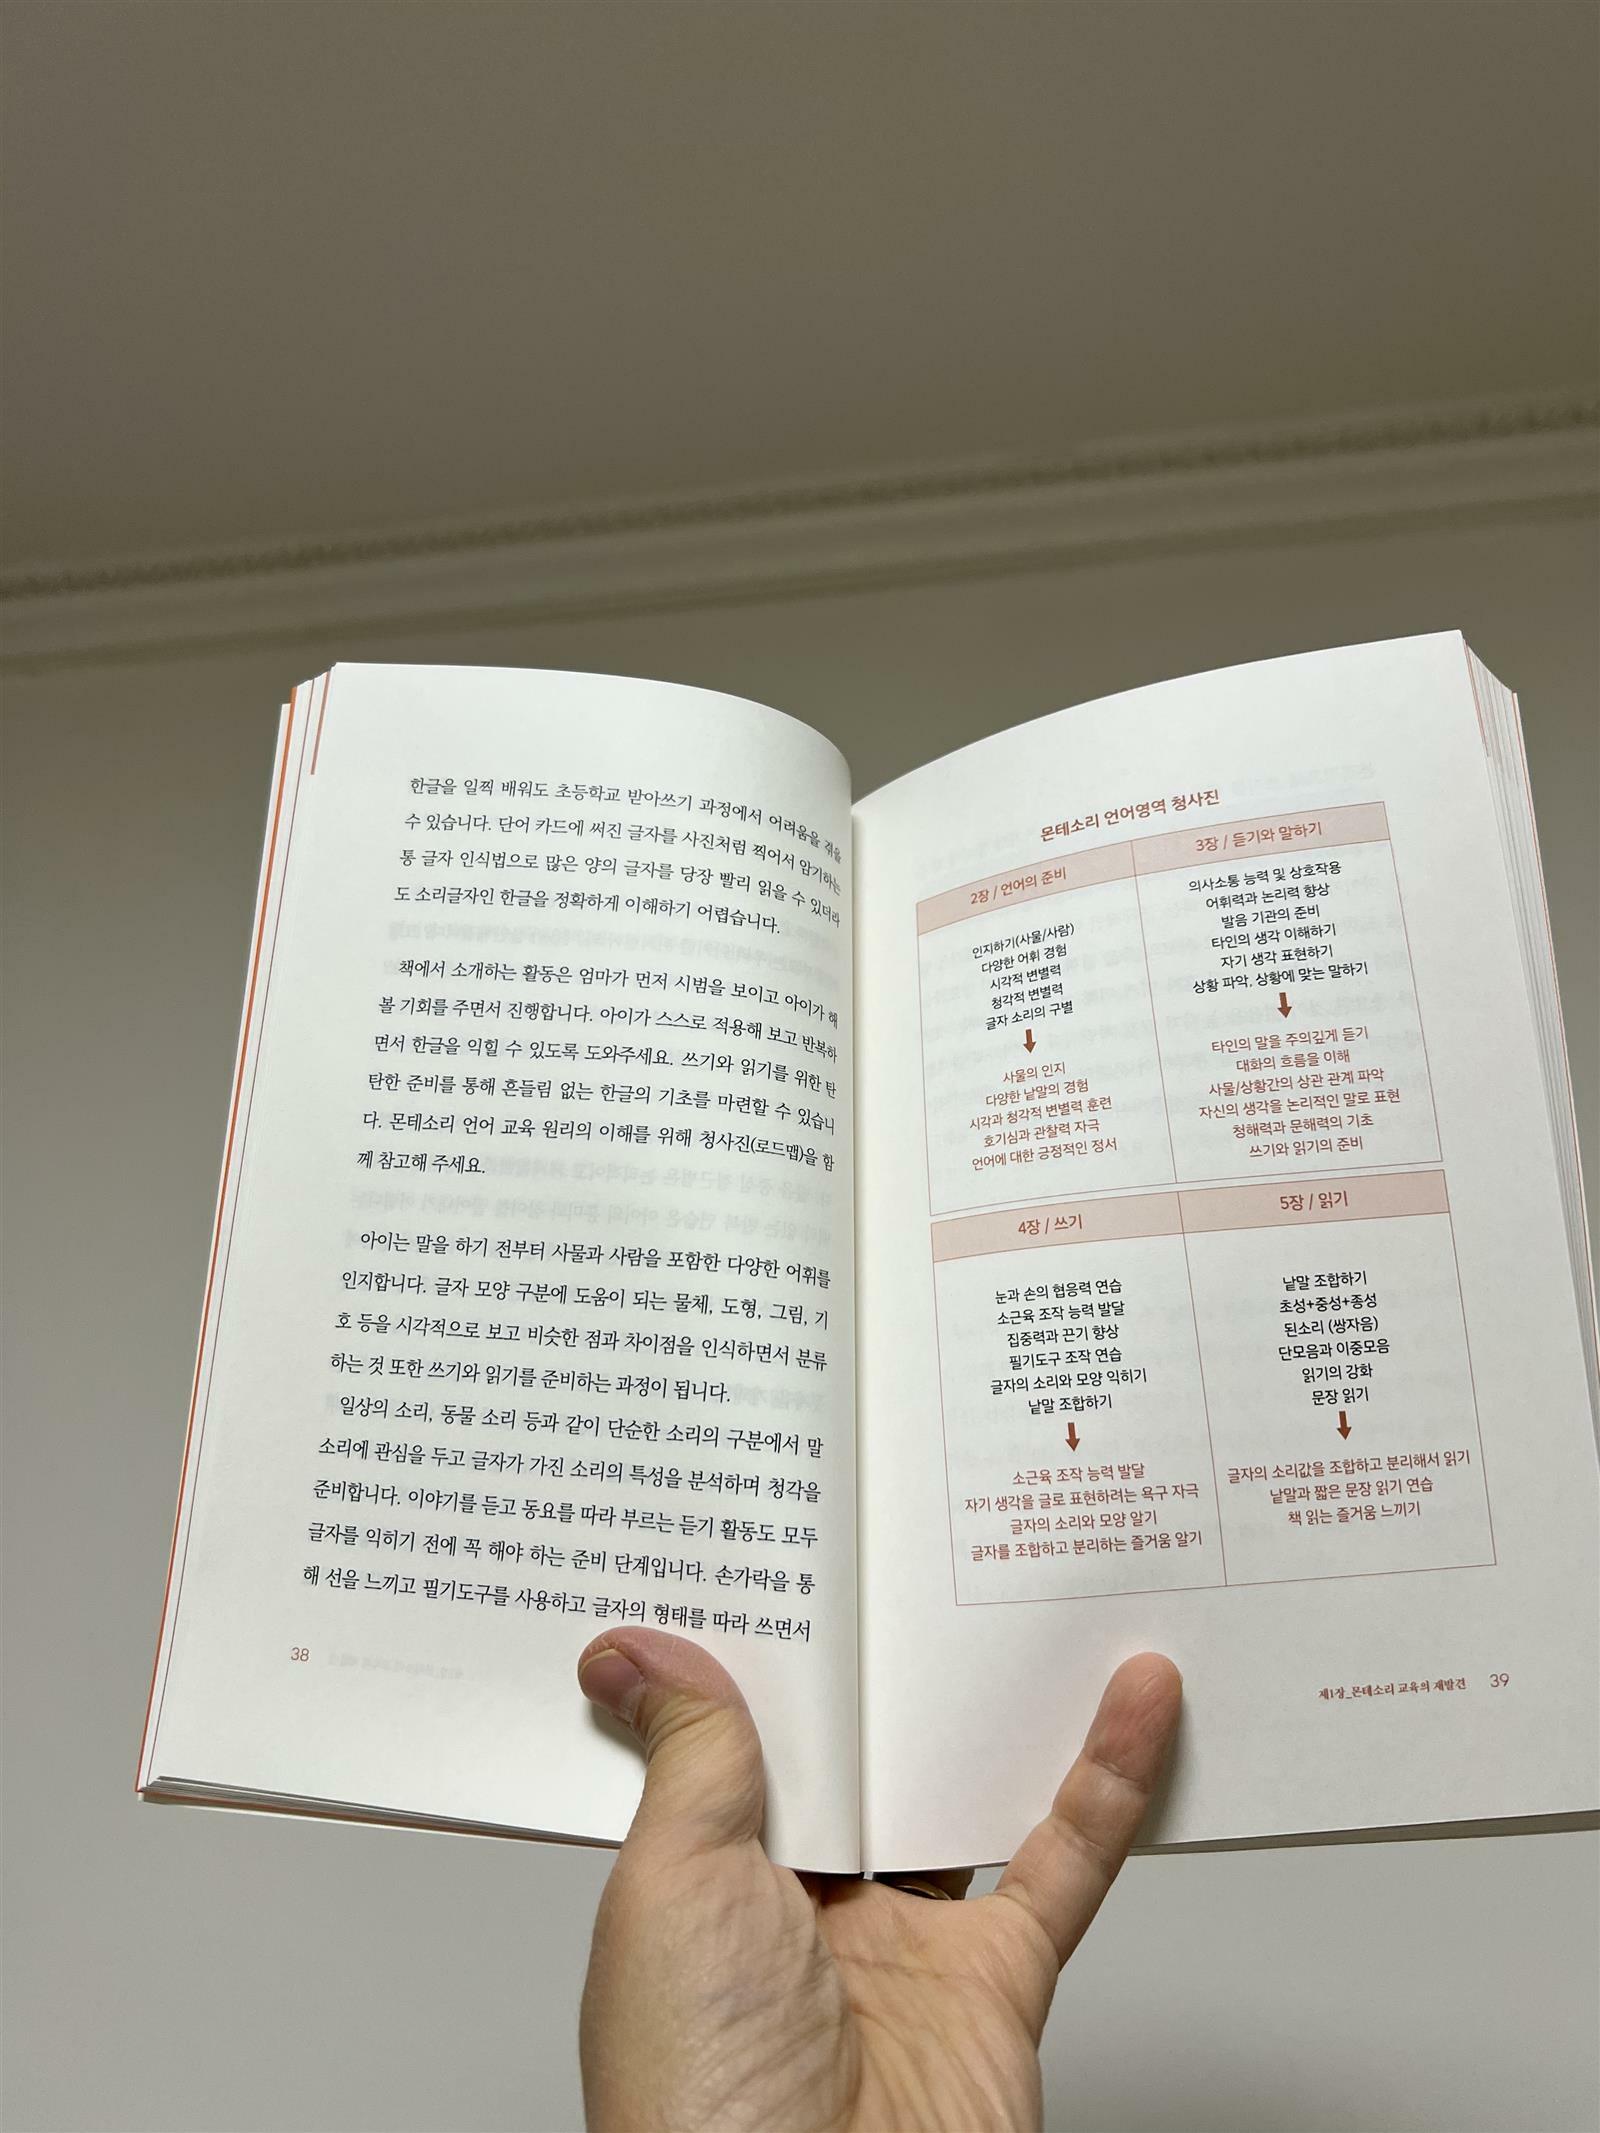 한글을 일찍 배워도 초등학교 받아쓰기 과정에서 어려움을 겪을
수 있습니다. 단어 카드에 써진 글자를 사진처럼 찍어서 암기하는
통 글자 인식법으로 많은 양의 글자를 당장 빨리 읽을 수 있더라
도 소리글자인 한글을 정확하게 이해하기 어렵습니다.
책에서 소개하는 활동은 엄마가 먼저 시범을 보이고 아이가 해
볼 기회를 주면서 진행합니다. 아이가 스스로 적용해 보고 반복하
면서 한글을 익힐 수 있도록 도와주세요. 쓰기와 읽기를 위한 탄
탄한 준비를 통해 흔들림 없는 한글의 기초를 마련할 수 있습니
다. 몬테소리 언어 교육 원리의 이해를 위해 청사진(로드맵)을 함
께 참고해 주세요.
아이는 말을 하기 전부터 사물과 사람을 포함한 다양한 어휘를
인지합니다. 글자 모양 구분에 도움이 되는 물체, 도형, 그림, 기
호 등을 시각적으로 보고 비슷한 점과 차이점을 인식하면서 분류
하는 것 또한 쓰기와 읽기를 준비하는 과정이 됩니다.
일상의 소리, 동물 소리 등과 같이 단순한 소리의 구분에서 말
소리에 관심을 두고 글자가 가진 소리의 특성을 분석하며 청각을
준비합니다. 이야기를 듣고 동요를 따라 부르는 듣기 활동도 모두
글자를 익히기 전에 꼭 해야 하는 준비 단계입니다. 손가락을 통
해 선을 느끼고 필기도구를 사용하고 글자의 형태를 따라 쓰면서
38
몬테소리 언어영역 청사진
2장 / 언어의 준비
인지하기(사물/사람)
다양한 어휘 경험
시각적 변별력
청각적 변별력
글자 소리의 구별
사물의 인지
다양한 낱말의 경험
시각과 청각적 변별력 훈련
호기심과 관찰력 자극
언어에 대한 긍정적인 정서
3장 / 듣기와 말하기
의사소통 능력 및 상호작용
어휘력과 논리력 향상
발음 기관의 준비
타인의 생각 이해하기
자기 생각 표현하기
상황 파악, 상황에 맞는 말하기
타인의 말을 주의깊게 듣기
대화의 흐름을 이해
사물/상황간의 상관 관계 파악
자신의 생각을 논리적인 말로 표현
청해력과 문해력의 기초
쓰기와 읽기의 준비
4장 / 쓰기
눈과 손의 협응력 연습
소근육 조작 능력 발달
집중력과 끈기 향상
필기도구 조작 연습
글자의 소리와 모양 익히기
낱말 조합하기
소근육 조작 능력 발달
자기 생각을 글로 표현하려는 욕구 자극
글자의 소리와 모양 알기
글자를 조합하고 분리하는 즐거움 알기
5장 / 읽기
낱말 조합하기
초성+중성+종성
된소리 (쌍자음)
단모음과 이중모음
읽기의 강화
문장 읽기
글자의 소리값을 조합하고 분리해서 읽기
낱말과 짧은 문장 읽기 연습
책 읽는 즐거움 느끼기
제1장_몬테소리 교육의 재발견 39